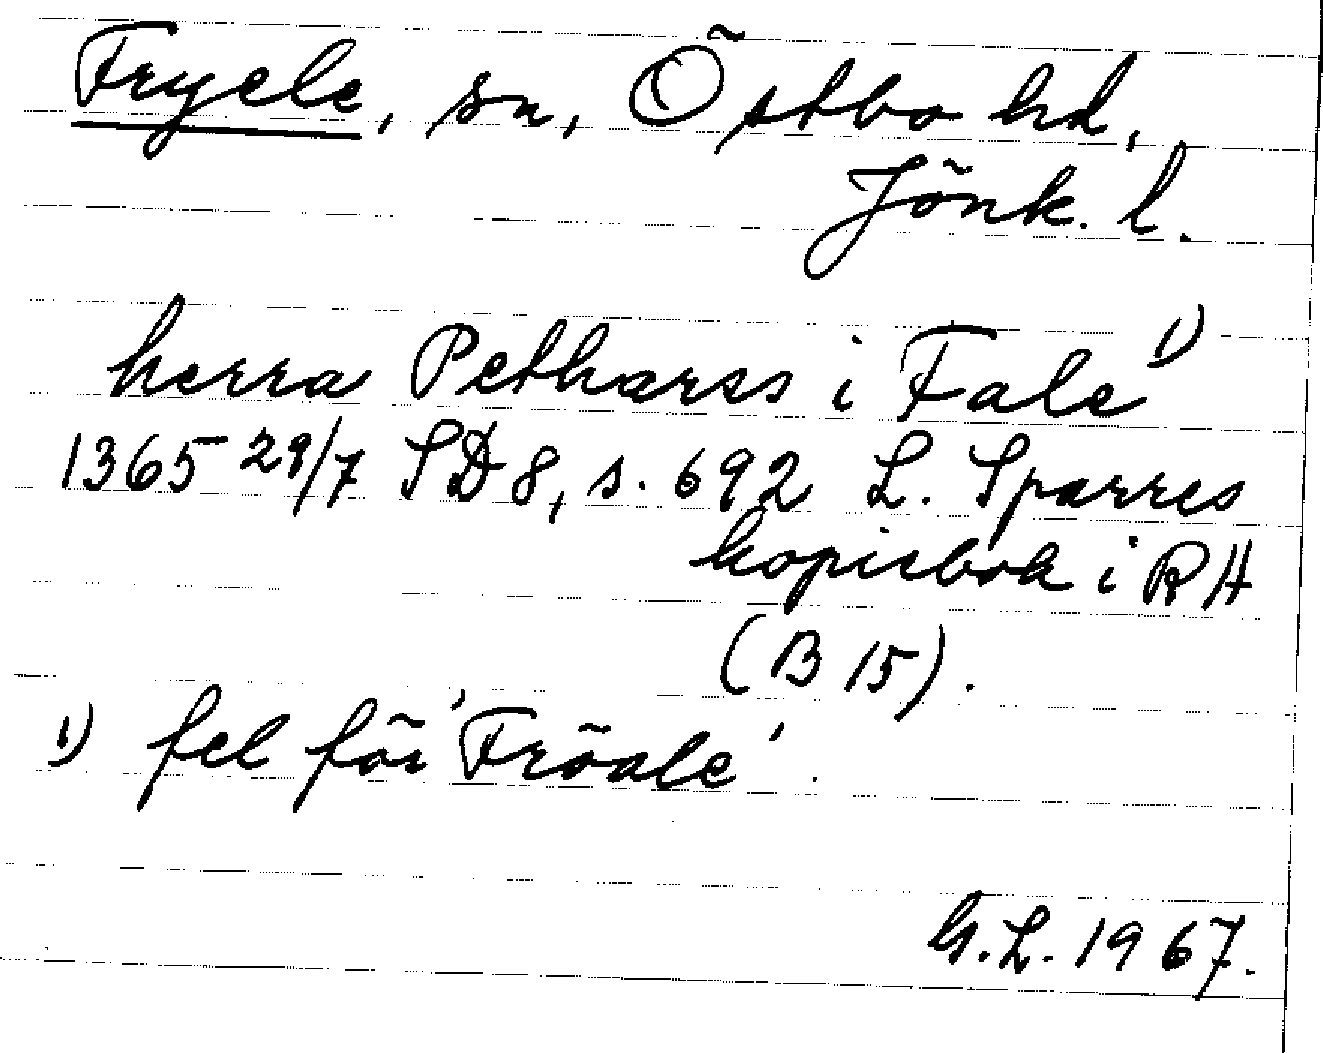 Fryele, sn, Östbo hd,
Jönk. l.
herra Petharss i Fale 1)
1365 29/7 SD 8, s. 692 L. Sparres
kopiebok i RA
(B 15).
1) fel för 'Fröale'.
G.L. 1967.